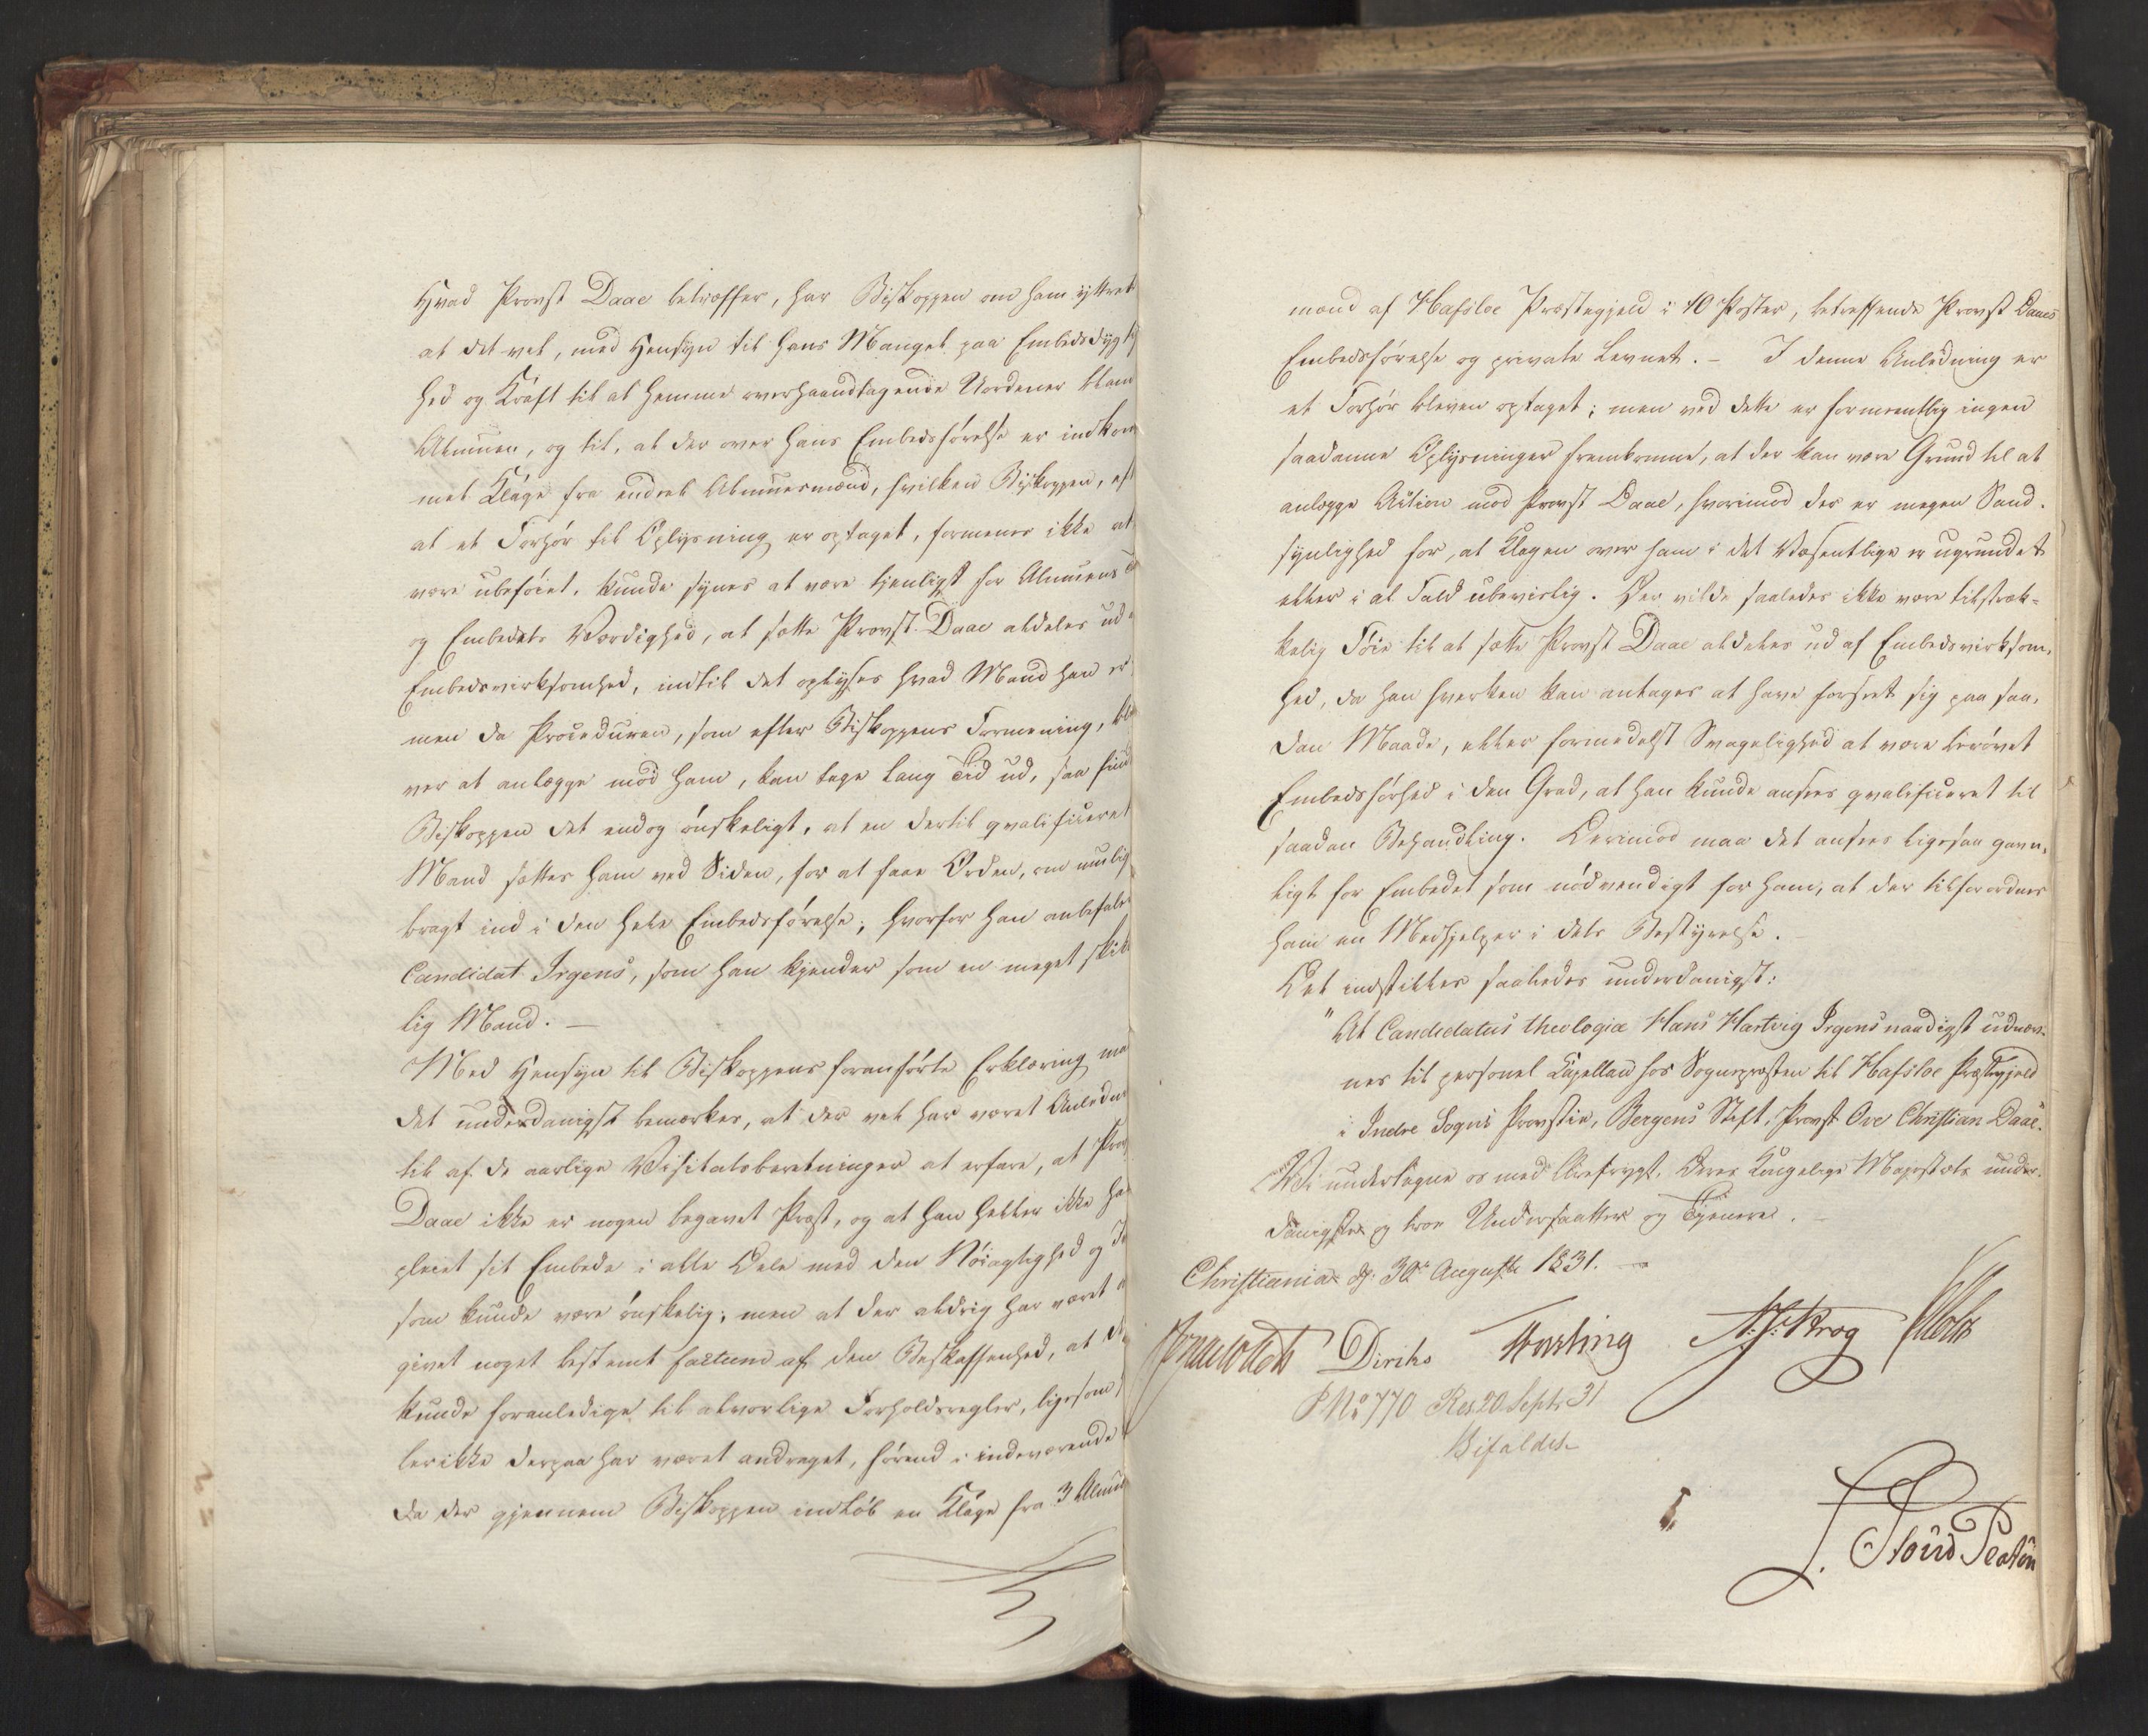 Hvad Provst Daae betræffer, har Biskoppen om ham yttret
at det vel, med Hensyn til hans Mangel paa Embedsdygtig
hed og Kraft til at hemme overhaandtagende Uordener blam
Almuen, og til, at der over hans Embedsførelse er indkom
met Klage fra endeel Almuesmænd, hvilken Biskoppen, eft
at et Forhør til Oplysning er optaget, formener ikke at
være ubeføiet, kunde synes at være tjenligst for Almuens
og Embedets Værdighed, at sætte Provst Daae aldeles ud
Embedsvirksomhed, indtil det oplyses hvad Mand han er
men da Proceduren, som efter Biskoppens Formening, bli
ver at anlægge mod ham, kan tage lang Tid ud, saa find
Biskoppen det endog ønskeligt, at en dertil qvalificeret
Mand sættes ham ved Siden, for at faae Orden, om mulig
bragt ind i den hele Embedsførelse; hvorfor han anbefaler
Candidat Irgens, som han kjender som en meget skik
lig Mand. —
Med Hensyn til Biskoppens foranførte Erklæring maa
det underdanigst bemærkes, at der vel har været Anledn
til af de aarlige Visitatsberetninger at erfare, at Prov
Daae ikke er nogen begavet Præst, og at han heller ikke ha
pleiet sit Embede i alle Dele med den Nøiagtighed og
som kunde være ønskelig; men at der aldrig har været
givet noget bestemt factum af den Beskaffenhed, at de
kunde foranledige til alvorlige Forholdsregler, ligesom
ler ikke derpaa har været andraget, førend i indeværende
da der gjennem Biskoppen indløb en Klage fra 3 Almu
mænd af Hafsloe Præstegjeld i 10 Poster, betreffende Provst Daaes
Embedsførelse og private Levnet. – I denne Anledning er
et Forhør bleven optaget; men ved dette er formeentlig ingen
saadanne Oplysninger fremkomne, at der kan være Grund til at
anlægge Action mod Provst Daae, hvorimod der er megen Sand-
synlighed for, at Klagen over ham i det Væsentlige er ugrundet
eller i al Fald ubeviislig. Der vilde saaledes ikke være tilstræk-
kelig Føie til at sætte Provst Daae aldeles ud af Embedsvirksom-
hed, da han hverken kan antages at have forseet sig paa saa-
dan Maade, eller formedelst Svagelighed at være berøvet
Embedsførhed i den Grad, at han kunde ansees qvalificeret til
saadan Behandling. Derimod maa det ansees ligesaa gavn-
ligt for Embedet som nødvendigt for ham, at der tilforordnes
ham en Medhjelper i dets Bestyrelse.
Det indstilles saaledes underdanigst:
"At Candidatus theologiæ Hans Hartvig Irgens naadigst udnæv-
nes til personel Capellan hos Sognepræsten til Hafsloe Præstegjeld
i Indre Sogns Provstie, Bergens Stift, Provst Ove Christian Daae."
Vi undertegne os med Ærefrygt, Deres Kongelige Majestæts under-
danigste og troe Undersaatter og Tjenere. —
Christiania d. 30te Augusti 1831. —
Diriks Vosting N. J. Krog
P No 770 Res. 20 Septr 31
Bifaldes
L. Stoud Platou